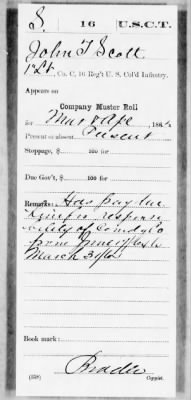 S. 16 U.S.C.T.
John T Scott
1 Lt., Co. C, 16 Reg't U. S. Col'd Infantry.
Appears on
Company Muster Roll
for Mar & Apr, 186
Present or absent, Present
Stoppage, $ 100 for
Due Gov't, $ 100 for
Remarks: Has pay due
responsi
bility of Comdg Co
from
March 31/65
Book mark:
(358) Copyist.